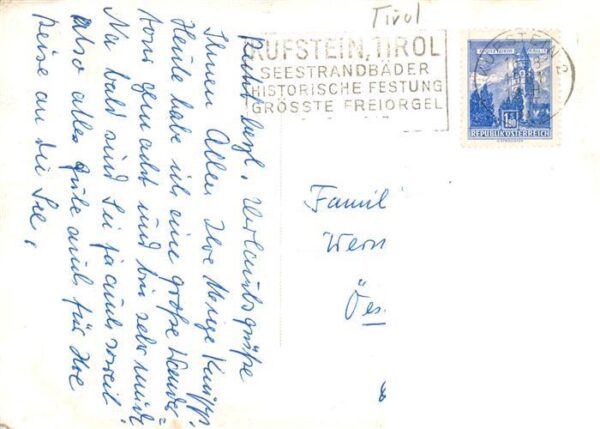 Tirol
KUFSTEIN, TIROL
SEESTRANDBÄDER
HISTORISCHE FESTUNG
GRÖSSTE FREIORGEL
KUFSTEIN 2
1.50
REPUBLIK ÖSTERREICH
Recht herzl. Urlaubsgrüße
Ihnen Allen Ihre
Heute habe ich eine große Wander=
tour gemacht und bin sehr müde
Na bald sind Sie ja auch soweit.
Also alles gute auch für Ihre
Reise an die See,
Famil
Wern